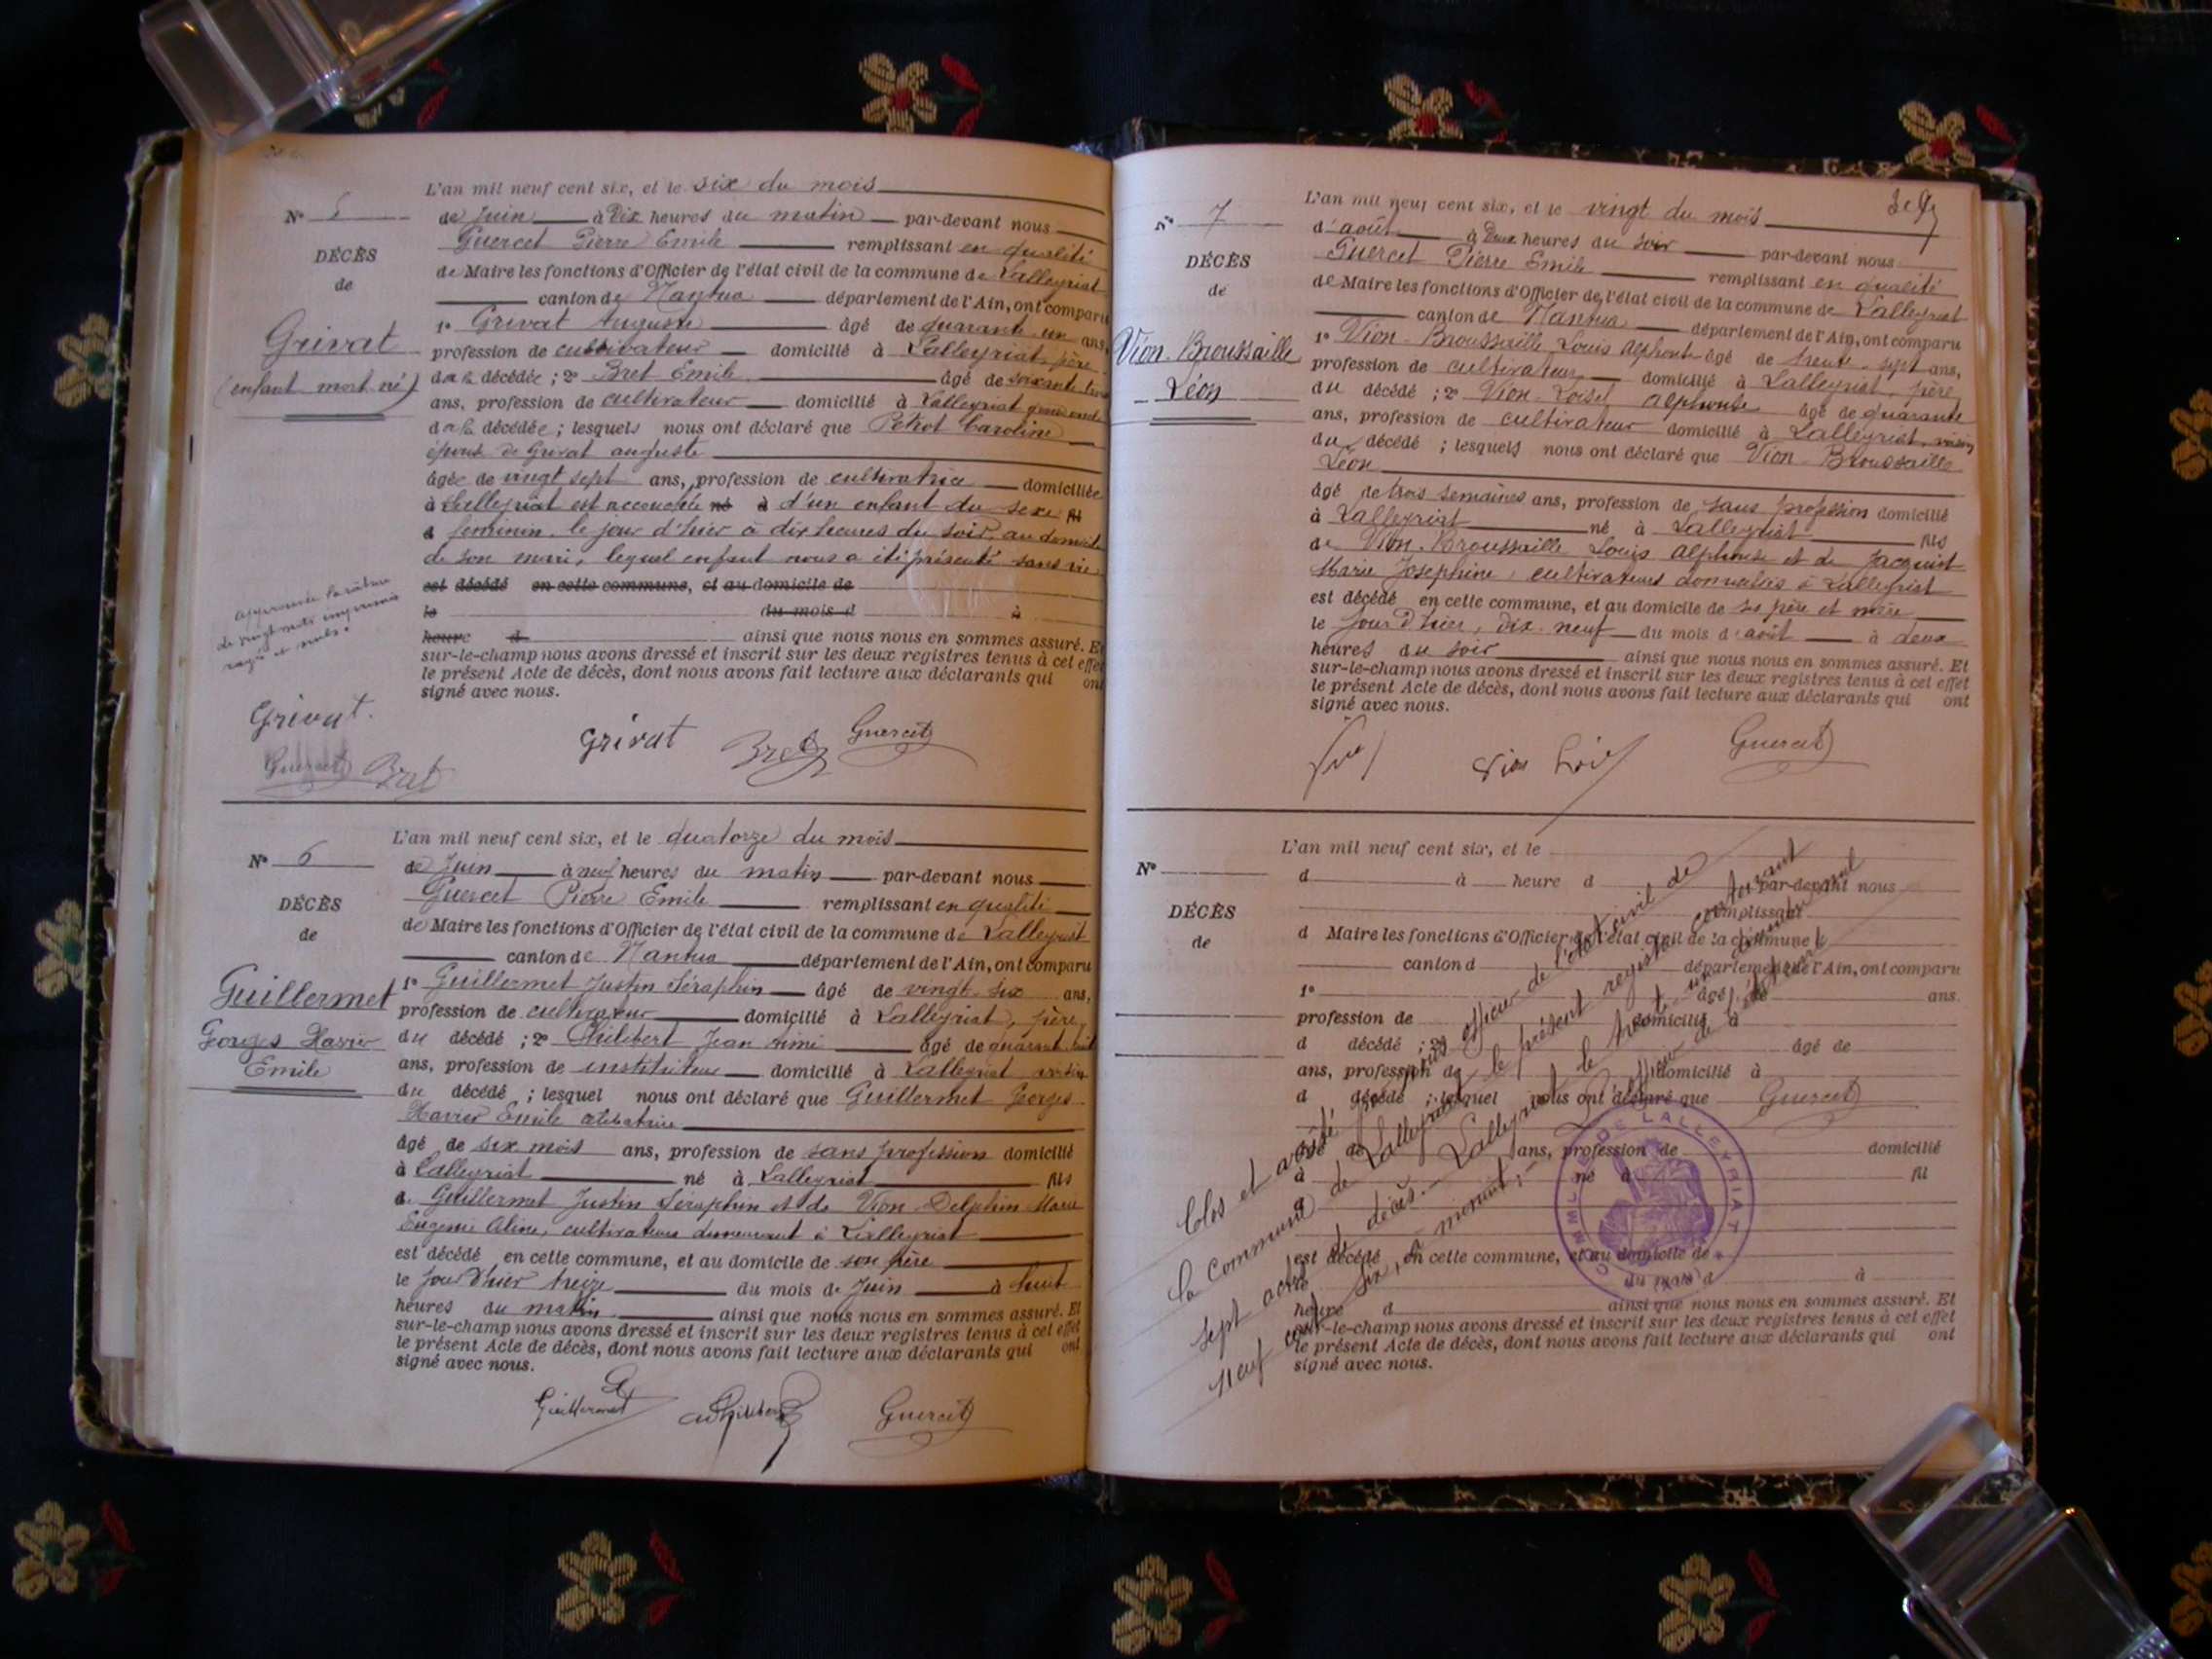 L'an mil neuf cent six, et le six du mois
N° 5
de Juin à Dix heures du matin par-devant nous
Guercet Pierre Emile remplissant en qualité
DÉCÈS
de
de Maire les fonctions d'Officier de l'état civil de la commune de Lalleyriat
canton de Nantua département de l'Ain, ont comparu
1° Grivat Auguste âgé de quarante un ans,
Grivat
(enfant mort né)
profession de cultivateur domicilié à Lalleyriat, père
de la décédée ; 2° Bret Emile âgé de soixante
ans, profession de cultivateur domicilié à Lalleyriat
de la décédée ; lesquels nous ont déclaré que Caroline
épouse de Grivat auguste
âgée de vingt sept ans, profession de cultivatrice domiciliée
à Lalleyriat est accouchée né à d'un enfant du sexe fil
d feminin. le jour d'hier à dix heures du soir, au domicile
de son mari, lequel enfant nous a été présenté sans vie
est décédé en cette commune, et au domicile de
le du mois d à
heure d ainsi que nous nous en sommes assuré. Et
sur-le-champ nous avons dressé et inscrit sur les deux registres tenus à cet effet
le présent Acte de décès, dont nous avons fait lecture aux déclarants qui ont
signé avec nous.
approuvée la rature
de vingt mots imprimés
rayés et nuls.
Grivat.
Guercet Bret
Grivat Bret Guercet
L'an mil neuf cent six, et le quatorze du mois
N° 6
de Juin à neuf heures du matin par-devant nous
Guercet Pierre Emile remplissant en qualité
DÉCÈS
de
de Maire les fonctions d'Officier de l'état civil de la commune de Lalleyriat
canton de Nantua département de l'Ain, ont comparu
1° Guillermet Justin Séraphin âgé de vingt six ans,
Guillermet
Georges Xavier
Emile
profession de cultivateur domicilié à Lalleyriat, père
du décédé ; 2° Philibert Jean âgé de quarante huit
ans, profession de instituteur domicilié à Lalleyriat voisin
du décédé ; lesquel nous ont déclaré que Guillermet Georges
Xavier Emile célibataire
âgé de six mois ans, profession de sans profession domicilié
à Lalleyriat né à Lalleyriat fils
de Guillermet Justin Séraphin et de Vion-Delphin Marie
Eugenie Aline, cultivateurs demeurant à Lalleyriat
est décédé en cette commune, et au domicile de son père
le jour d'hier treize du mois de Juin à huit
heures du matin ainsi que nous nous en sommes assuré. Et
sur-le-champ nous avons dressé et inscrit sur les deux registres tenus à cet effet
le présent Acte de décès, dont nous avons fait lecture aux déclarants qui ont
signé avec nous.
Guillermet Philibert Guercet
L'an mil neuf cent six, et le vingt du mois
N° 7
d'août à Deux heures du soir par-devant nous
Guercet Pierre Emile remplissant en qualité
DÉCÈS
de
de Maire les fonctions d'Officier de l'état civil de la commune de Lalleyriat
canton de Nantua département de l'Ain, ont comparu
1° Vion-Broussaille Louis Alphonse âgé de trente-sept ans,
Vion-Broussaille
Léon
profession de cultivateur domicilié à Lalleyriat, père
du décédé ; 2° Vion-Loisel Alphonse âgé de quarante
ans, profession de cultivateur domicilié à Lalleyriat, voisin
du décédé ; lesquels nous ont déclaré que Vion-Broussaille
Léon
âgé de trois semaines ans, profession de sans profession domicilié
à Lalleyriat né à Lalleyriat fils
de Vion-Broussaille Louis Alphonse et de Jacquiot
Marie Josephine, cultivateurs domiciliés à Lalleyriat
est décédé en cette commune, et au domicile de ses père et mère
le jour d'hier, dix-neuf du mois d'août à deux
heures du soir ainsi que nous nous en sommes assuré. Et
sur-le-champ nous avons dressé et inscrit sur les deux registres tenus à cet effet
le présent Acte de décès, dont nous avons fait lecture aux déclarants qui ont
signé avec nous.
Guercet
L'an mil neuf cent six, et le
N°
d à heure d par-devant nous
remplissant
DÉCÈS
de
d Maire les fonctions d'Officier de l'état civil de la commune d
canton d département de l'Ain, ont comparu
1° âgé de ans.
profession de domicilié à
d décédé ; 2° âgé de
ans, profession de domicilié à
d décédé ; lesquel nous ont déclaré que
âgé de ans, profession de domicilié
à né à fil
d
est décédé en cette commune, et au domicile de
le du mois d à
heure d ainsi que nous nous en sommes assuré. Et
sur-le-champ nous avons dressé et inscrit sur les deux registres tenus à cet effet
le présent Acte de décès, dont nous avons fait lecture aux déclarants qui ont
signé avec nous.
Clos et arrêté par nous officier de l'état civil de
la commune de Lalleyriat le présent registre contenant
sept actes de décès. Lalleyriat le trente un décembre mil
neuf cent six, à minuit, L'officier de l'état civil
Guercet
COMMUNE DE LALLEYRIAT
(AIN)